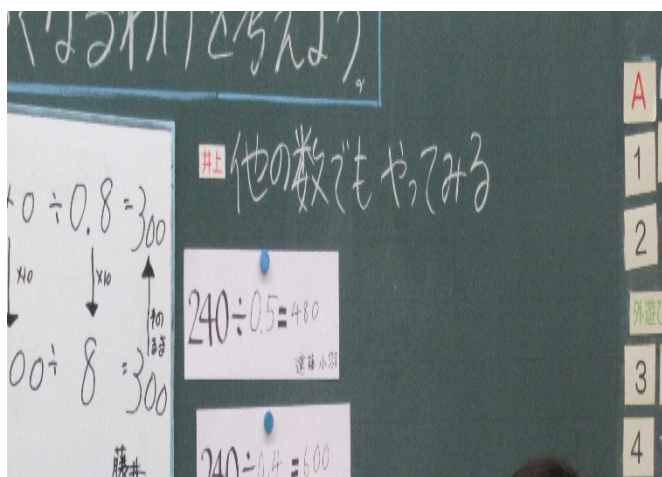 くなるわけを考えよう。
井上 他の数でも やってみる
0÷0.8=300
×10 ×10 そのまま
00÷8=300
藤井
240÷0.5=480
遠藤 小羽
240÷0.4=600
A
1
2
外遊び
3
4